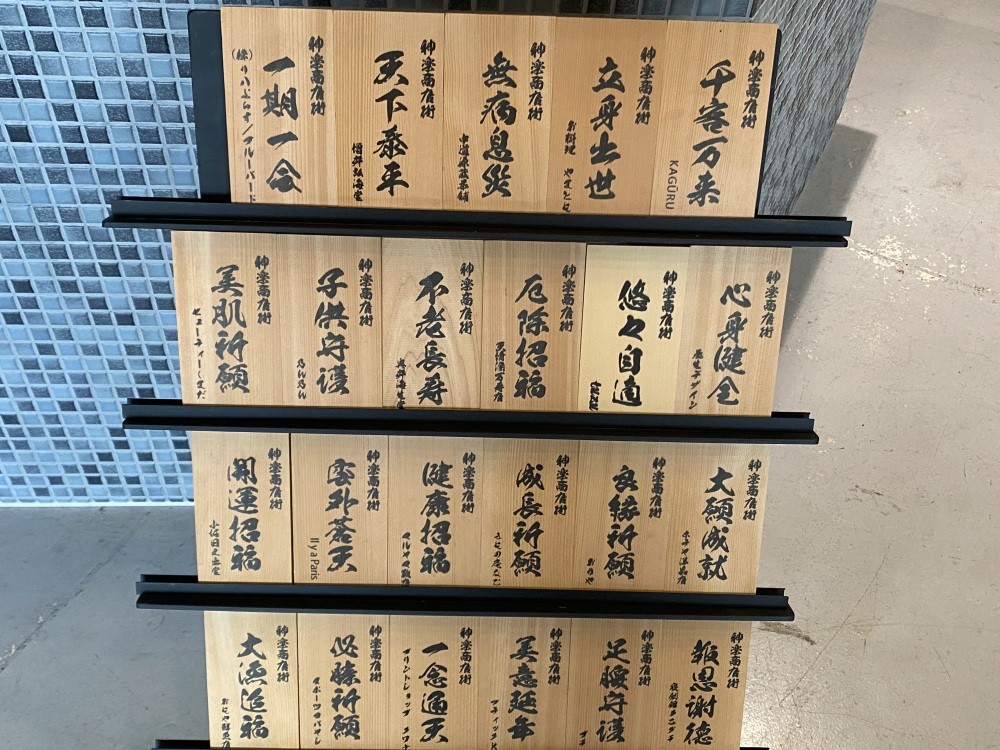 神楽商店街
千客万来
KAGŪRU
神楽商店街
立身出世
お料理
神楽商店街
無病息災
神楽商店街
天下泰平
増井弘海堂
神楽商店街
一期一会
神楽商店街
心身健全
養生デザイン
神楽商店街
悠々自適
神楽商店街
厄除招福
天清酒万寿店
神楽商店街
不老長寿
奥井海生堂
神楽商店街
子供守護
神楽商店街
美肌祈願
ビューティーしまだ
神楽商店街
大願成就
神楽商店街
良縁祈願
おりや
神楽商店街
成長祈願
神楽商店街
健康招福
神楽商店街
雲外蒼天
Il y a Paris
神楽商店街
開運招福
神楽商店街
報恩謝徳
神楽商店街
足腰守護
神楽商店街
美意延年
神楽商店街
一念通天
プリントショップ
神楽商店街
必勝祈願
神楽商店街